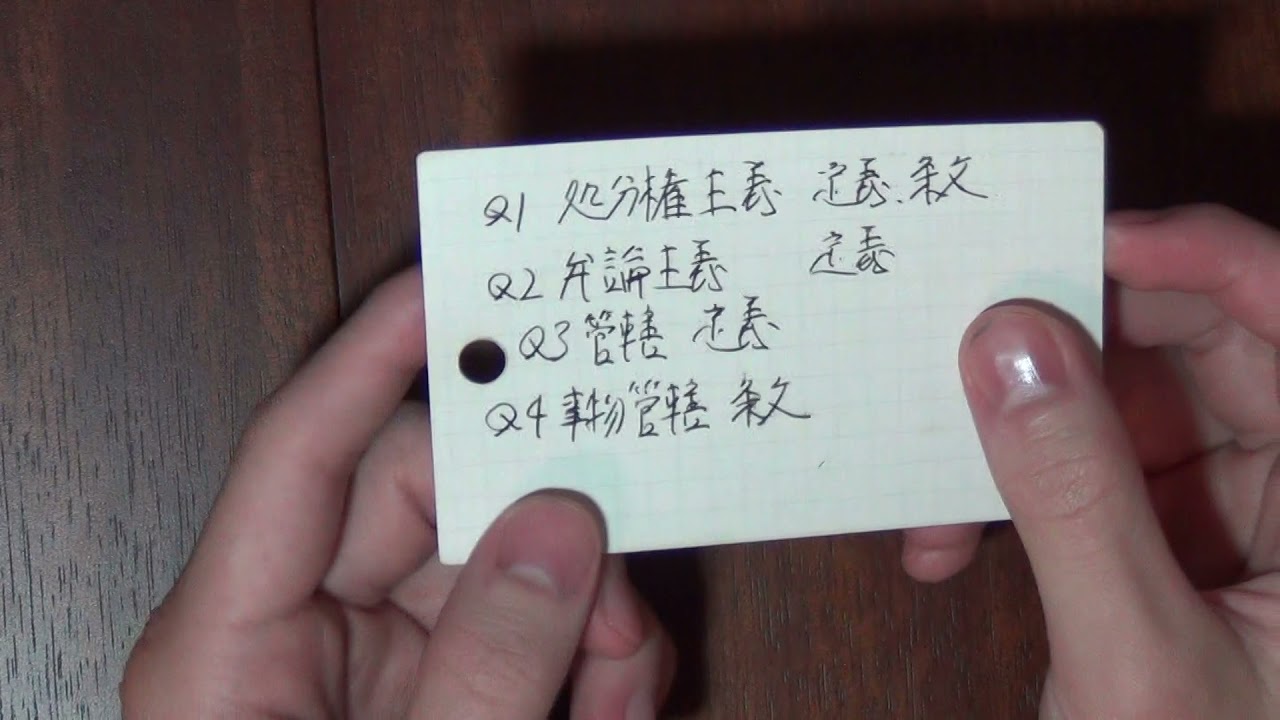 Q1 処分権主義 定義、条文
Q2 弁論主義 定義
Q3 管轄 定義
Q4 事物管轄 条文